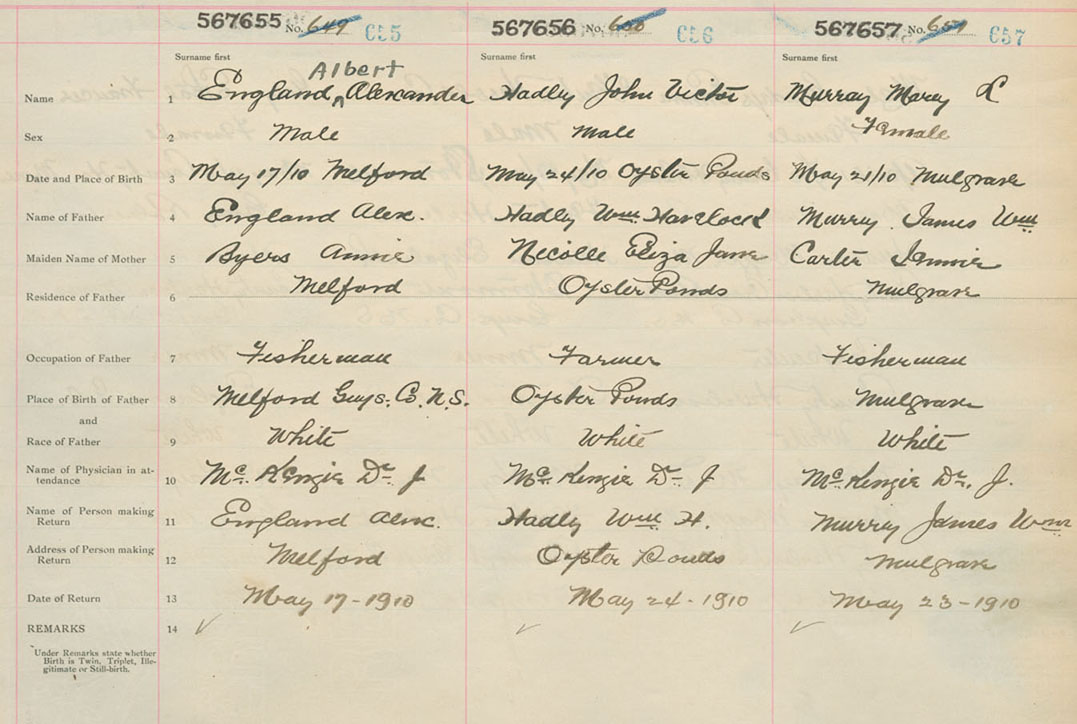 567655 No. 649 655 567656 No. 650 656 567657 No. 651 657
Surname first Surname first Surname first
Albert
Name 1 England, Alexander Hadly John Victor Murray Mary L
Sex 2 Male Male Female
Date and Place of Birth 3 May 17/10 Melford May 24/10 Oyster Ponds May 21/10 Mulgrave
Name of Father 4 England Alex. Hadly Wm. Havelock Murray James Wm
Maiden Name of Mother 5 Byers Annie Nicolle Eliza Jane Carter Jennie
Residence of Father 6 Melford Oyster Ponds Mulgrave
Occupation of Father 7 Fisherman Farmer Fisherman
Place of Birth of Father 8 Melford Guys. Co. N.S. Oyster Ponds Mulgrave
and
Race of Father 9 White White White
Name of Physician in at-
tendance 10 McKenzie Dr J McKenzie Dr J McKenzie Dr. J.
Name of Person making
Return 11 England Alex. Hadly Wm H. Murray James Wm
Address of Person making
Return 12 Melford Oyster Ponds Mulgrave
Date of Return 13 May 17-1910 May 24-1910 May 23-1910
REMARKS 14
Under Remarks state whether
Birth is Twin, Triplet, Ille-
gitimate or Still-birth.